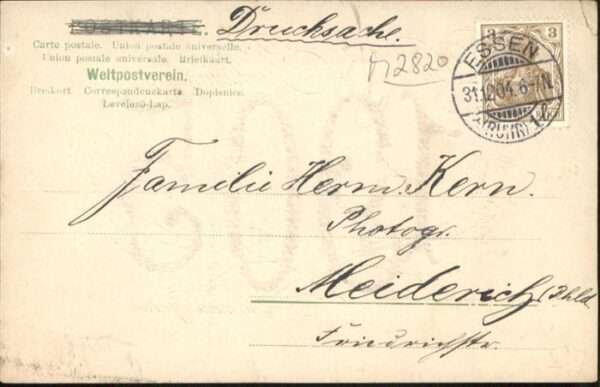 Drucksache.
Carte postale. Union postale universelle.
Union postale universale. Briefkaart.
Weltpostverein.
Brefkort. Correspondenzkarte. Dopisnice.
Levelező-Lap.
2820
3 3
ESSEN
31.12.04. 6-7N.
(RUHR)
Familie Herm. Kern.
Photogr.
Meiderich (Rhld
Friedrichstr.